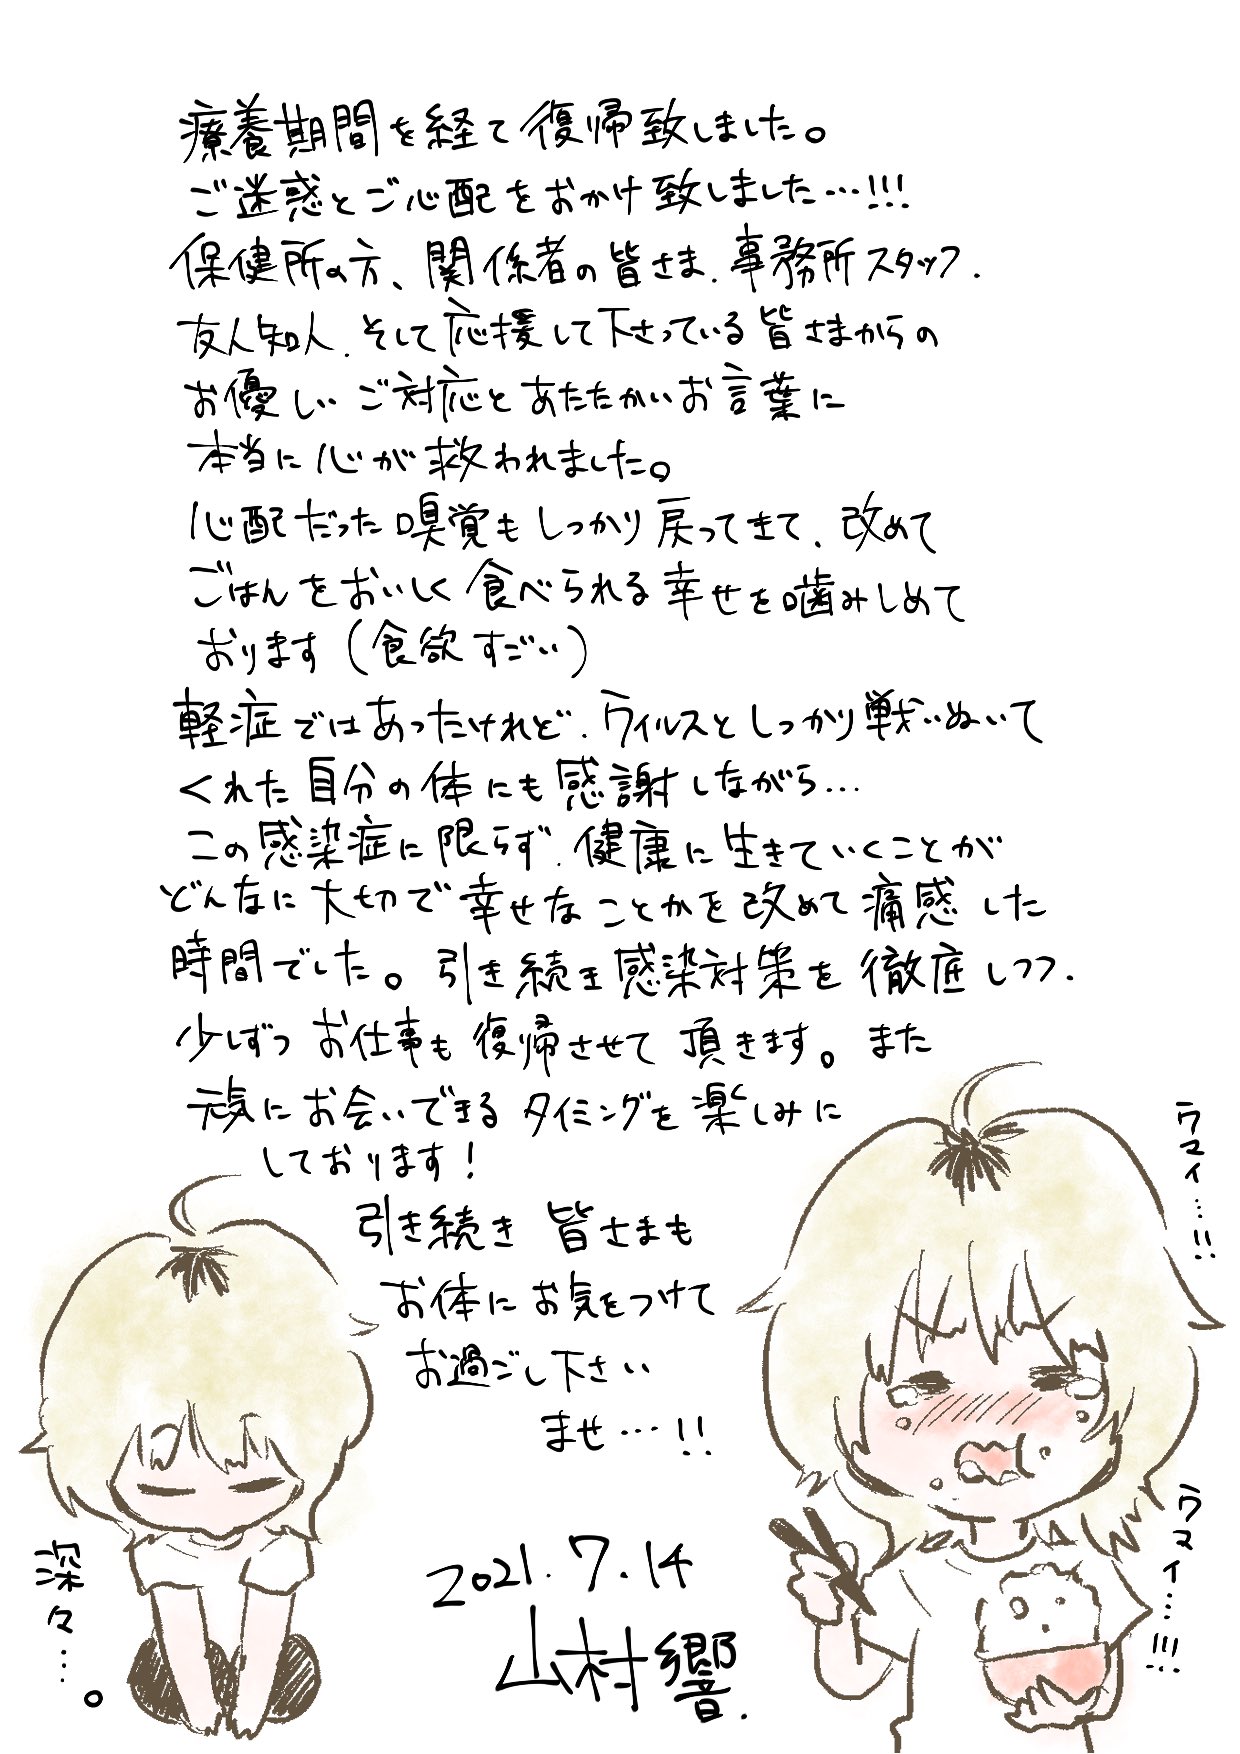 療養期間を経て復帰致しました。
ご迷惑とご心配をおかけ致しました…!!!
保健所の方、関係者の皆さま、事務所スタッフ、
友人知人、そして応援して下さっている皆さまからの
お優しいご対応とあたたかいお言葉に
本当に心が救われました。
心配だった嗅覚もしっかり戻ってきて、改めて
ごはんをおいしく食べられる幸せを噛みしめて
おります(食欲すごい)
軽症ではあったけれど、ウィルスとしっかり戦いぬいて
くれた自分の体にも感謝しながら…
この感染症に限らず、健康に生きていくことが
どんなに大切で幸せなことかを改めて痛感した
時間でした。引き続き感染対策を徹底しつつ、
少しずつお仕事も復帰させて頂きます。また
元気にお会いできるタイミングを楽しみに
しております!
引き続き皆さまも
お体にお気をつけて
お過ごし下さい
ませ…!!
2021.7.14
山村響.
深々…。
ウマイ…!!
ウマイ…!!!